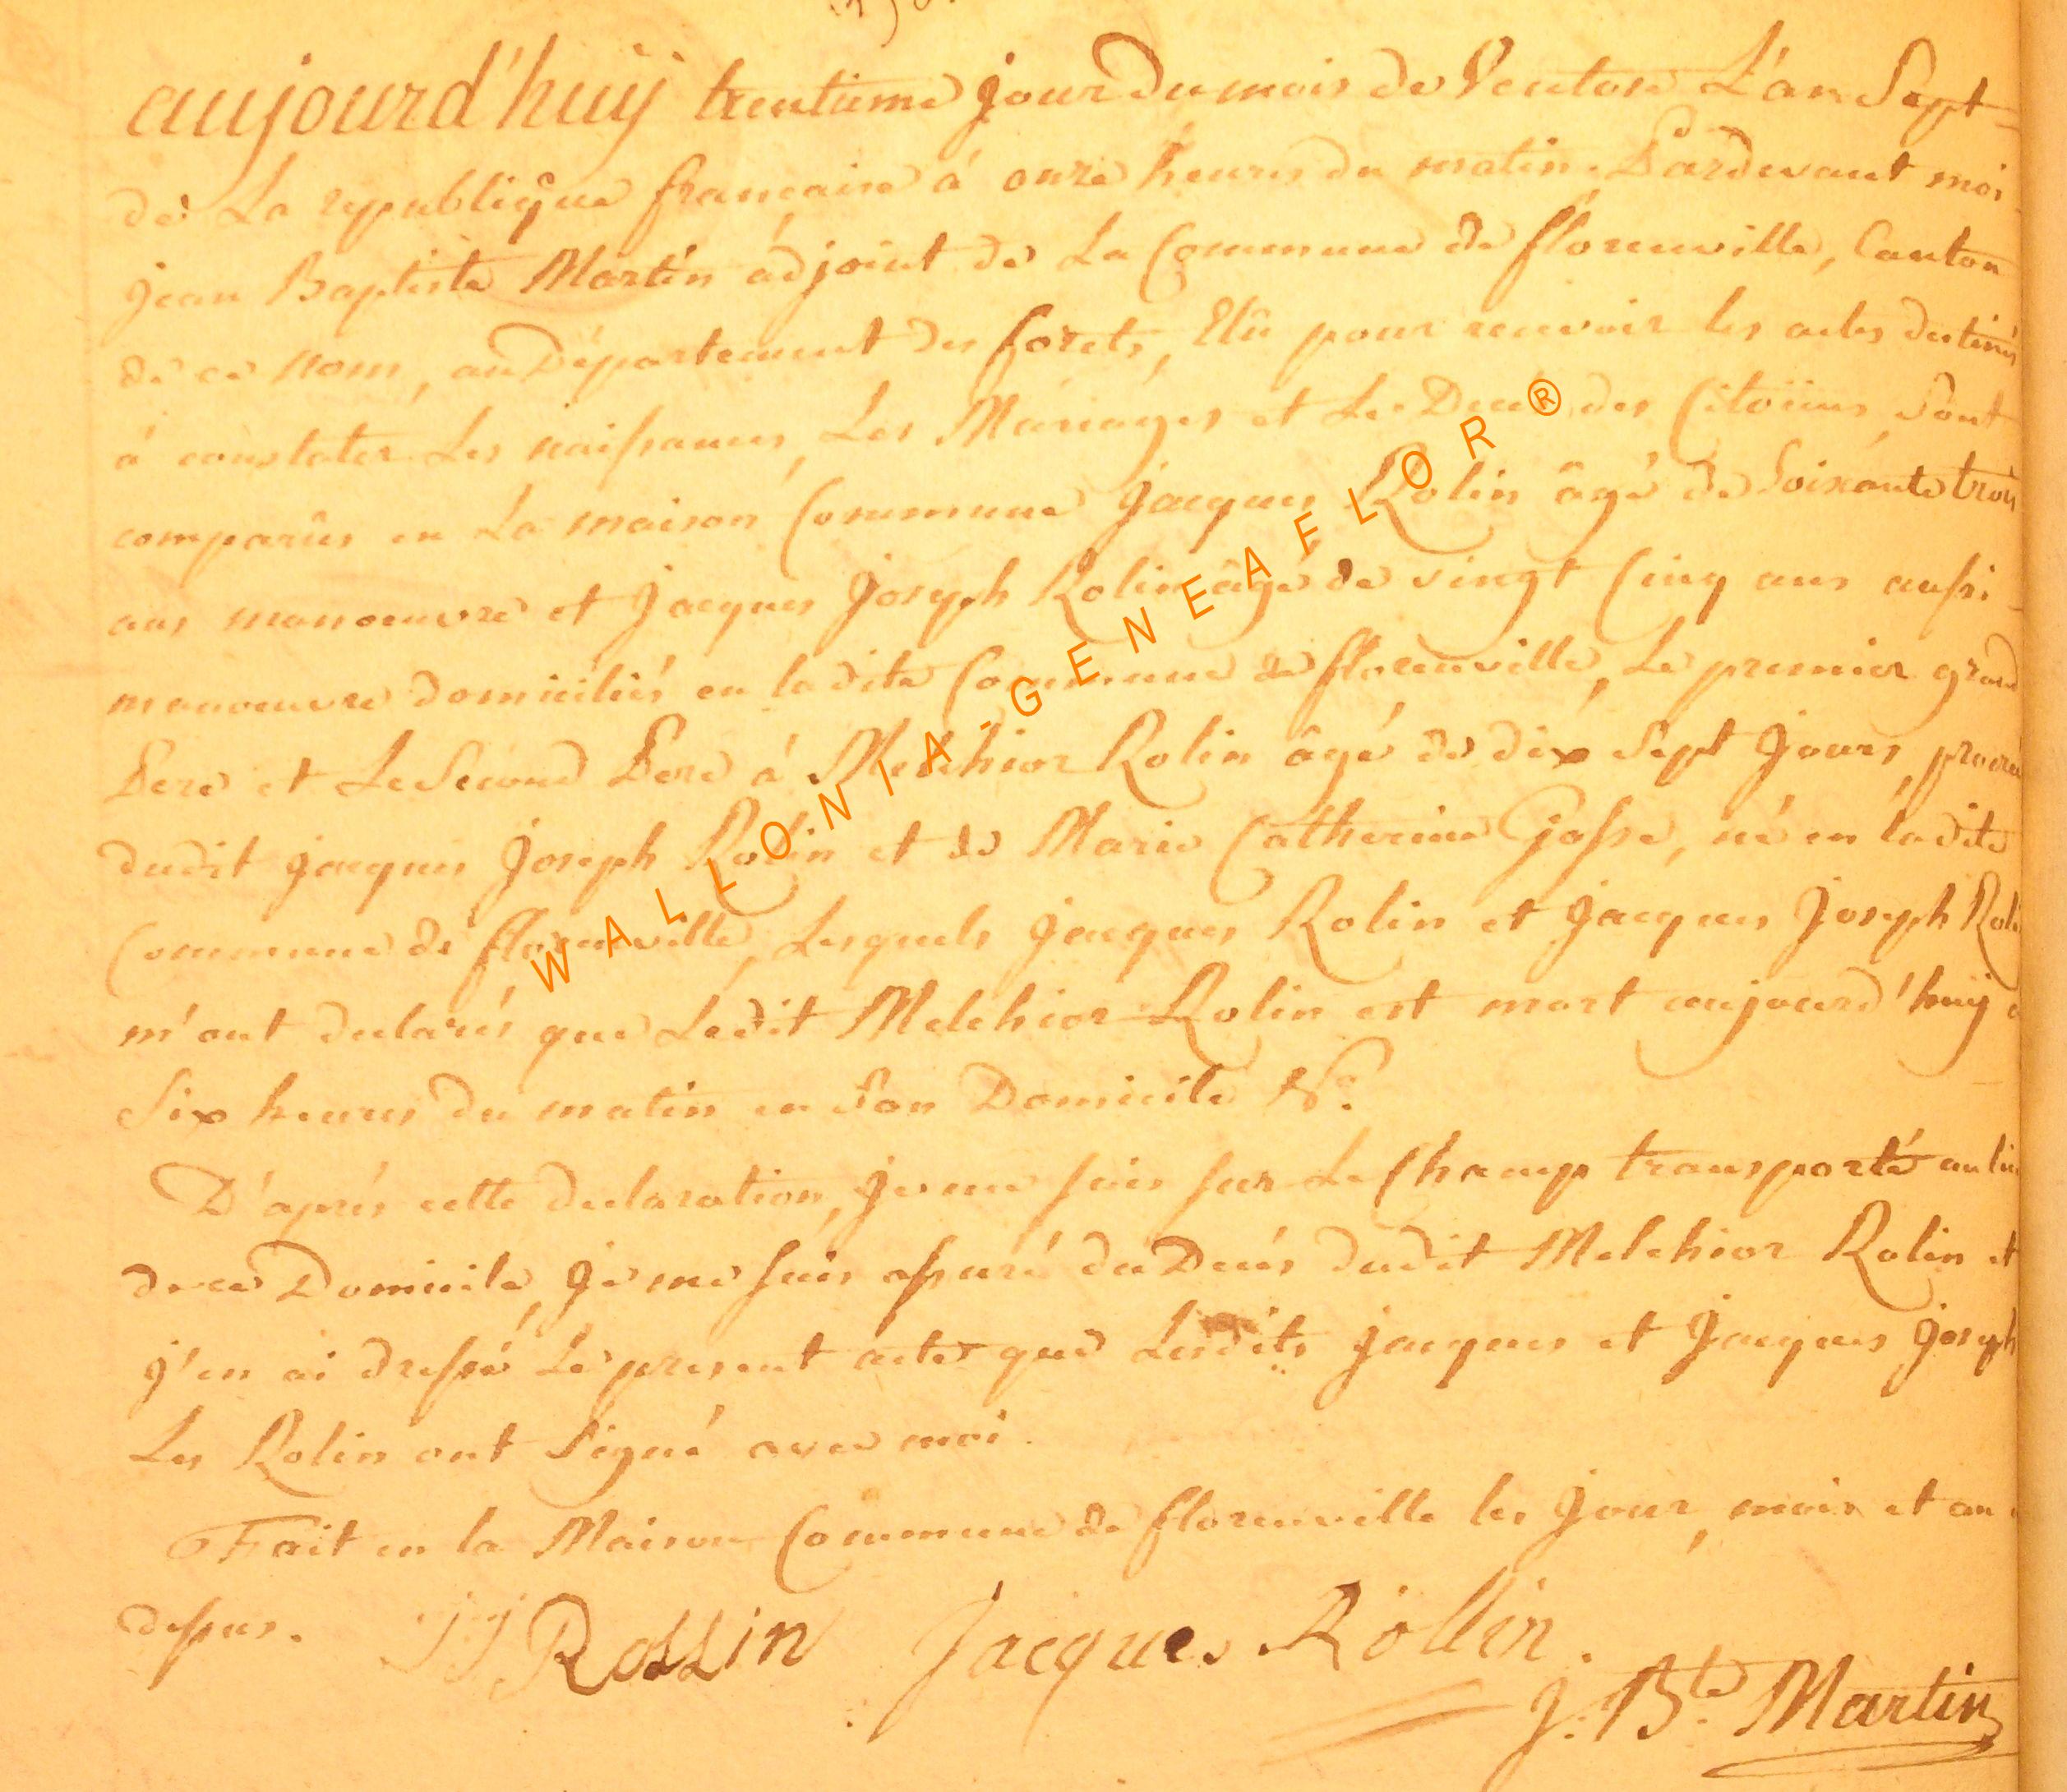 aujourd'huÿ trentieme jour du mois de Ventose L'an Sept
de La republique francaise á onze heures du matin, Pardevant moi
jean Baptiste Martin adjoint de La Commune de florenville, Canton
de ce nom, au Département des forets, Elû pour recevoir les actes destinés
á constater Les naissances, Les Mariages et Les Decés des Citoïens, Sont
comparûs en La maison Commune jacques Rolin âgé de Soixante trois
ans manoeuvre et jacques joseph Rolin âgé de vingt Cinq ans aussi
manoeuvre domiciliés en ladite Commune de florenville, Le premier grand
Pere et Le Second Pere á Melchior Rolin âgé de dix Sept jours,
dudit jacques joseph Rolin et de Marie Catherine Gosse, né en ladite
Commune de florenville, Lesquels jacques Rolin et jacques joseph Rolin
m'ont declarés que Ledit Melchior Rolin est mort aujourd'huy á
Six heures du matin en Son Domicile N.°
D'aprés cette declaration, je me suis sur Le Champ transporté au lieu
de ce Domicile, je me suis assuré du Decés dudit Melchior Rolin et
j'en ai dressé Le present acte que Lesdits jacques et jacques joseph
Les Rolin ont Signé avec moi.
Fait en la Maison Commune de florenville les jour, mois et an
dessus. JJ Rollin Jacques Rollin.
J. B.te Martin
WALLONIA-GENEAFLOR®